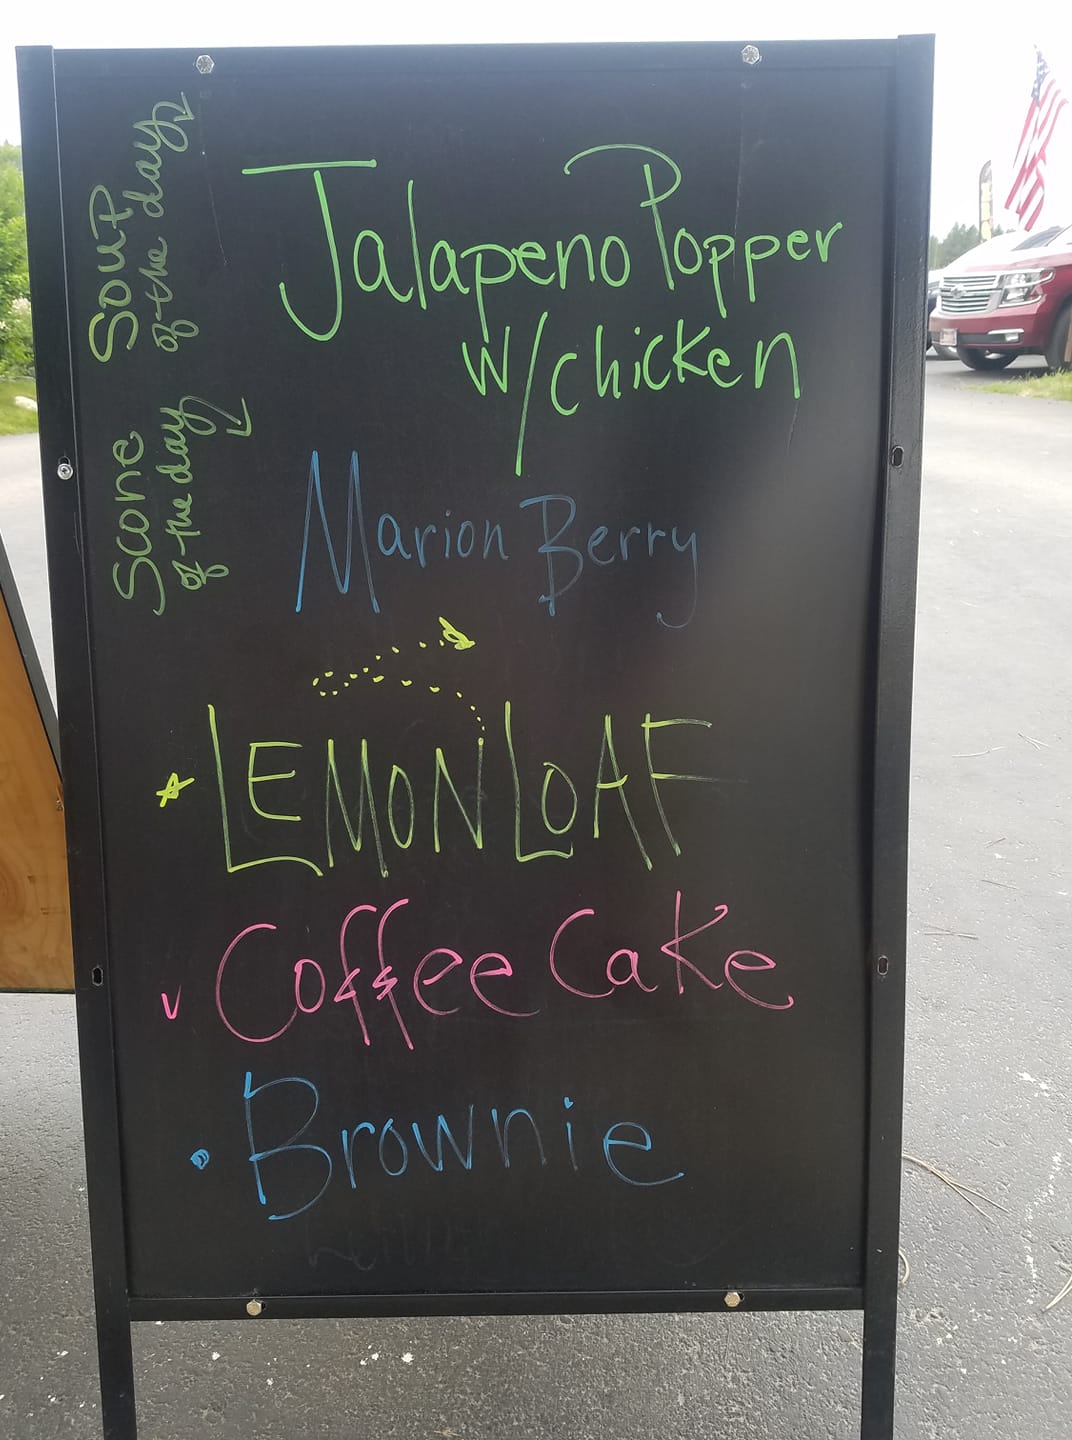 Soup
of the day
Jalapeno Popper
w/chicken
Scone
of the day
Marion Berry
LEMON LOAF
Coffee Cake
Brownie